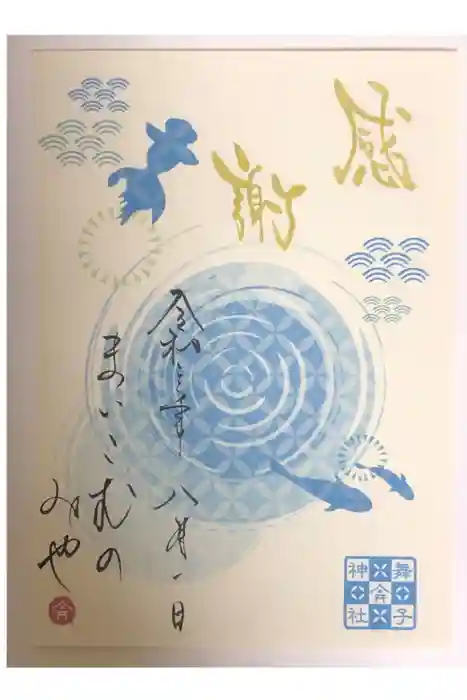 感
謝
令和三年八月一日
まいこむの
みや
舞子
六
神社